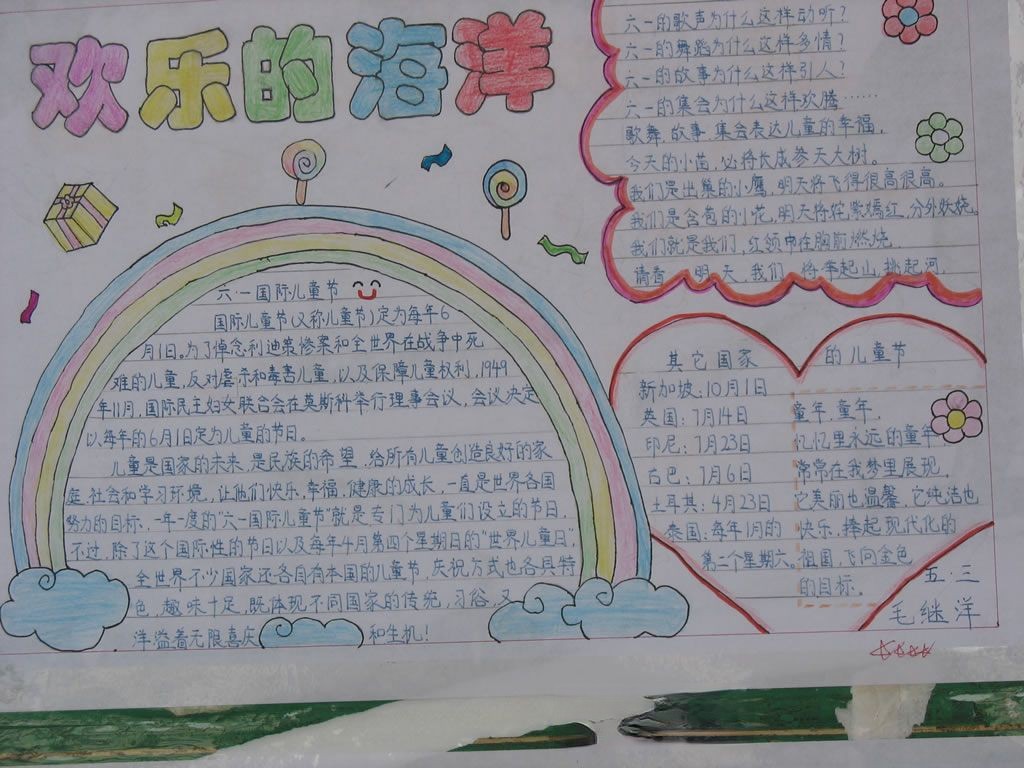 欢乐的海洋
六一的歌声为什么这样动听?
六一的舞蹈为什么这样多情?
六一的故事为什么这样引人?
六一的集会为什么这样欢腾……
歌舞,故事,集会表达儿童的幸福,
今天的小苗,必将长成参天大树。
我们是出巢的小鹰,明天将飞得很高很高。
我们是含苞的小花,明天将姹紫嫣红,分外妖娆。
我们就是我们,红领巾在胸前燃烧,
请看,明天,我们 将举起山,挑起河,
六·一国际儿童节
国际儿童节(又称儿童节)定为每年6
月1日。为了悼念利迪策惨案和全世界在战争中死
难的儿童,反对虐杀和毒害儿童,以及保障儿童权利,1949
年11月,国际民主妇女联合会在莫斯科举行理事会议,会议决定
以每年的6月1日定为儿童的节日。
儿童是国家的未来,是民族的希望,给所有儿童创造良好的家
庭,社会和学习环境,让他们快乐,幸福,健康的成长,一直是世界各国
努力的目标,一年一度的"六一国际儿童节"就是专门为儿童们设立的节日,
不过,除了这个国际性的节日以及每年4月第四个星期日的"世界儿童日",
全世界不少国家还各自有本国的儿童节,庆祝方式也各具特
色,趣味十足,既体现不同国家的传统,习俗,又
洋溢着无限喜庆 和生机!
其它国家 的儿童节
新加坡:10月1日
英国:7月14日
印尼:7月23日
古巴:7月6日
土耳其:4月23日
泰国:每年1月的
第二个星期六。
童年,童年,
忆忆里永远的童年
常常在我梦里展现,
它美丽也温馨,它纯洁也
快乐,捧起现代化的
祖国,飞向金色
的目标,
五·三
毛继洋